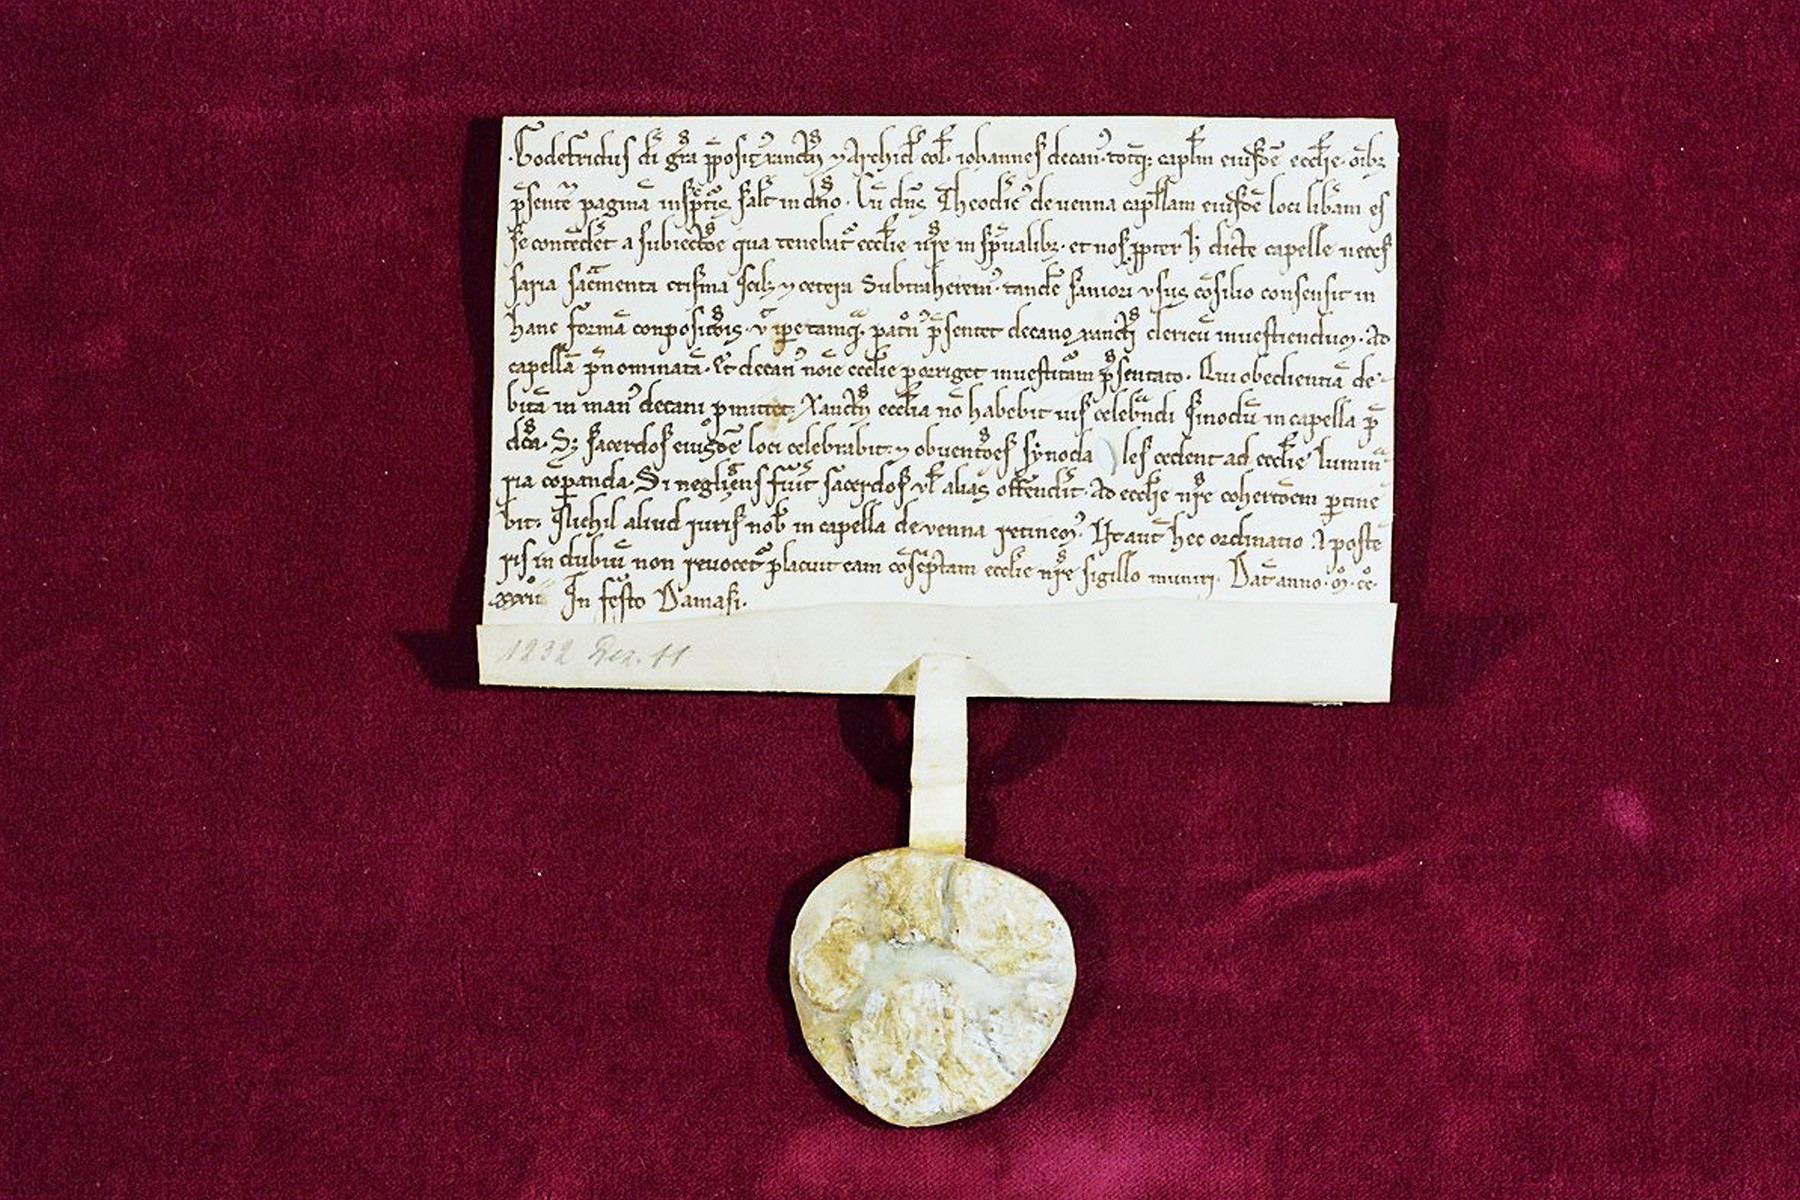 Godefridus dī gr̄a p̄posit᷒ xancten̄ ⁊ Archid̄ col̄. iohannes decan᷒ totq; capl̄m eiusdē eccl̄ie. oīb;
p̄sentē paginā inspectur̄ salt̄ in dn̄o. Cū dn̄s Theodic᷒ de uenna capellam eiusdē loci lib̄am es
se contēd̄et a subiectōe qua tenebat᷑ eccl̄ie nr̄e in sp̄ualib;. et nos p̱pter h̄ dicte capelle neces
saria sac̄menta crisma scil; ⁊ cetera subtraherem᷒. tandē saniori usus cōsilio consensit in
hanc formā conpositōis. ut ip̄e tamq̄. patn᷒ p̄sentet decano xancten̄ clericū inuestiendum. Ad
capellā p̄nominatā. Et decan᷒ nōīe eccl̄ie porriget inuestit᷑am p̄sentato. Qui obedientiā de-
bitā in man᷒ decani p̱mittet. Xancten̄ eccl̄ia nō habebit ius celeb̄ndi sinodū in capella p̄
dc̄a. S; sacerdos eiusdē loci celebrabit. ⁊ obuentōes synoda les cedent ad eccl̄ie lumin̄
ria cōparanda. Si negligens fuīt sacerdos ul̄ alias offendīt. Ad eccl̄ie nr̄e cohertōem p̱tine
bit. Nichil aliud iuris nob̄ in capella de uenna retinem᷒. Ut aut̄ hec ordinatio A poste
ris in dubiū non reuocet᷑ placuit eam cōsc̄ptam eccl̄ie nr̄e sigillo muniri. Dat̄ anno. m̊. cc̊.
xxxii̊ In festo Damasi.
1232 Dez. 11